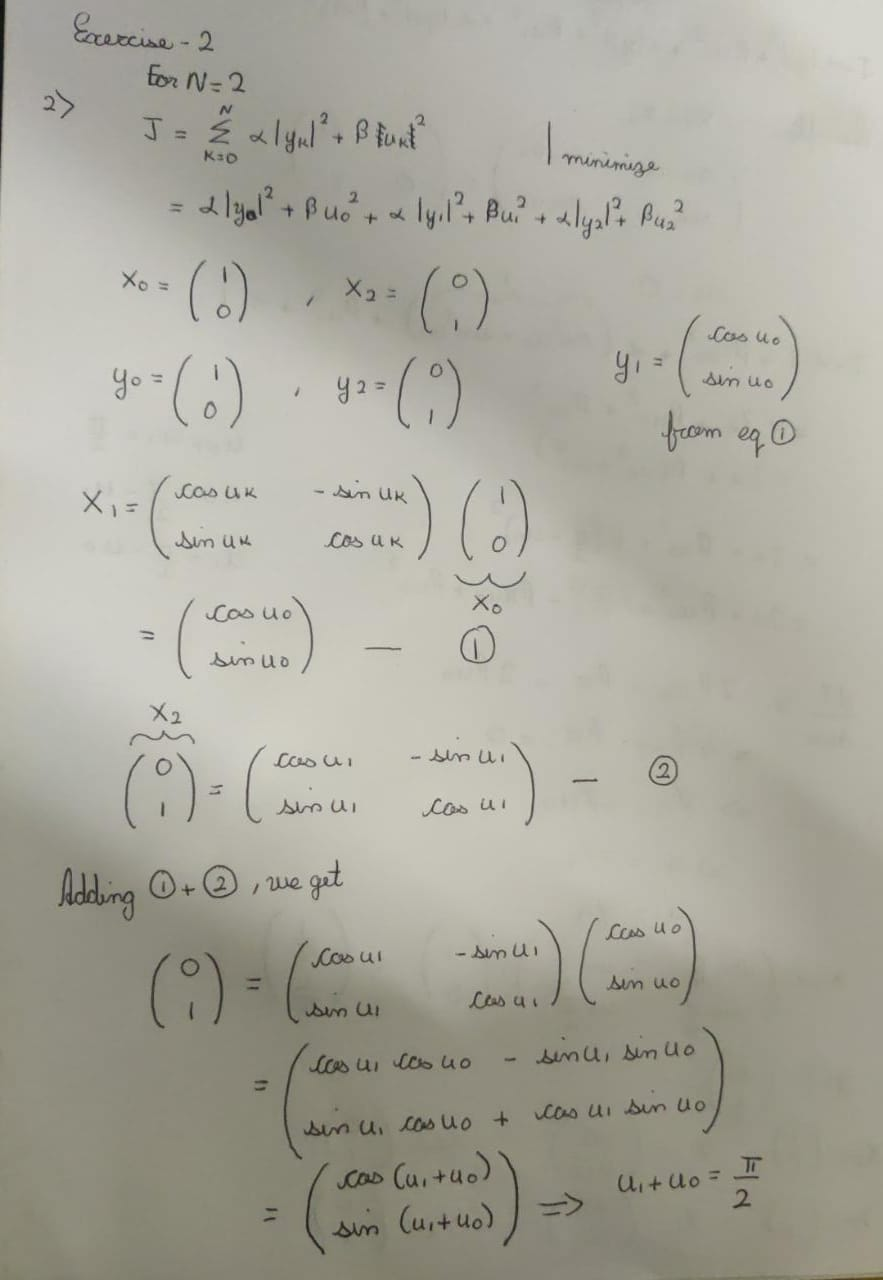 Exercise - 2
For N = 2
2>
J = N Σ K=0 α|yk|² + β|uk|² | minimize
= α|y0|² + βu0² + α|y1|² + βu1² + α|y2|² + βu2²
X0 = (1 0) , X2 = (0 1)
y0 = (1 0) , y2 = (0 1) y1 = (cos u0 sin u0)
from eq ①
X1 = (cos uK - sin uK
sin uK cos uK) (1 0)
X0
= (cos u0 sin u0) — ①
X2
(0 1) = (cos u1 - sin u1
sin u1 cos u1) — ②
Adding ① + ②, we get
(0 1) = (cos u1 - sin u1
sin u1 cos u1) (cos u0 sin u0)
= (cos u1 cos u0 - sin u1 sin u0
sin u1 cos u0 + cos u1 sin u0)
= (cos (u1 + u0)
sin (u1 + u0)) ⇒ u1 + u0 = π/2